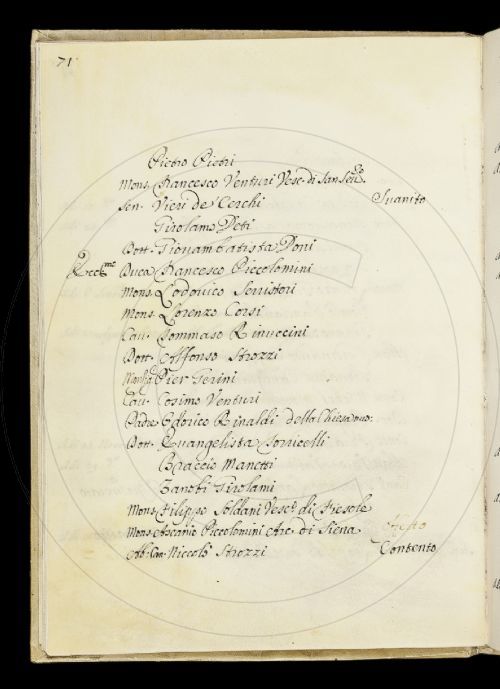 71
Pietro Pietri
Mons. Francesco Venturi Vesc. di San Sev.º
Sen. Vieri de' Cerchi Svanito
Girolamo Deti
Dott. Giovambatista Doni
Ecc.mo Duca Francesco Piccolomini
Mons. Lodovico Serristori
Mons. Lorenzo Corsi
Cav. Tommaso Rinuccini
Dott. Alfonso Strozzi
Pier Gerini
Cav. Cosimo Venturi
Padre Odorico Rinaldi della Chiesa nuo:
Dott. Evangelista Torricelli
Braccio Manetti
Zanobi Girolami
Mons. Filippo Soldani Vesc.º di Fiesole
Mons. Ascanio Piccolomini Arc. di Siena
Ab. Niccolò Strozzi Contento